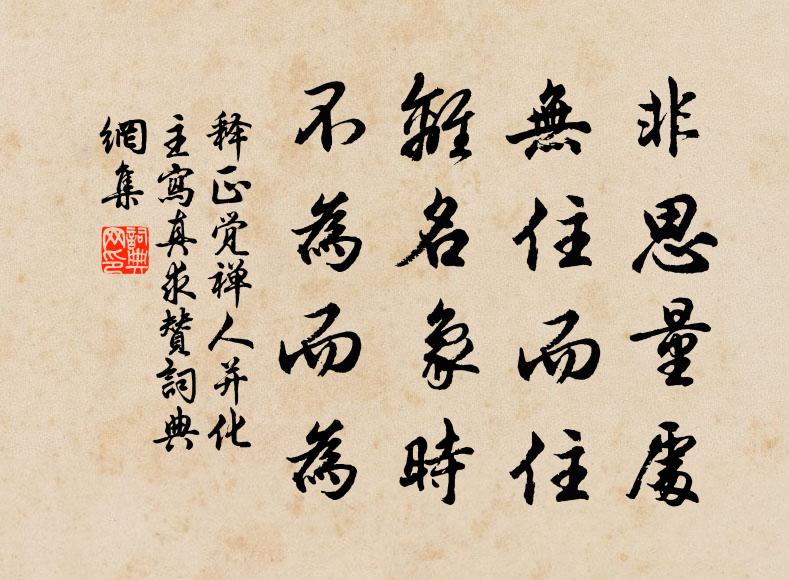 非思量處
無住而住
離名象時
不為而為
释正觉禅人并化
主寫真求贊詞典
網集
詞典
网印